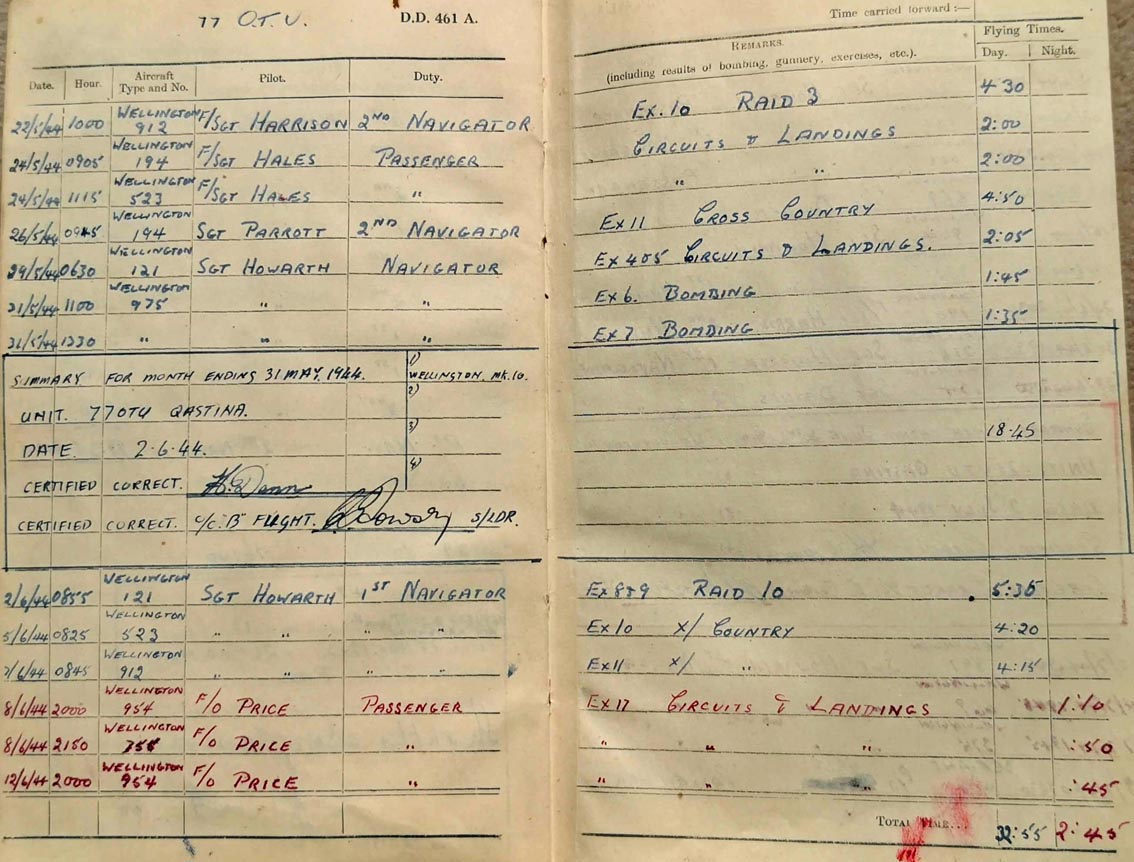 77 O.T.U. D.D. 461 A.
Time carried forward :—
Date. Hour. Aircraft Type and No. Pilot. Duty. REMARKS. (including results of bombing, gunnery, exercises, etc.). Flying Times. Day. Night.
22/5/44 1000 WELLINGTON 912 F/SGT HARRISON 2ND NAVIGATOR Ex. 10 RAID 3 4 30
24/5/44 0905 WELLINGTON 194 F/SGT HALES PASSENGER CIRCUITS & LANDINGS 2:00
24/5/44 1115 WELLINGTON 523 F/SGT HALES " " " 2:00
26/5/44 0945 WELLINGTON 194 SGT PARROTT 2ND NAVIGATOR Ex 11 CROSS COUNTRY 4:50
29/5/44 0630 WELLINGTON 121 SGT HOWARTH NAVIGATOR Ex 4&5 CIRCUITS & LANDINGS. 2:05
31/5/44 1100 WELLINGTON 975 " " Ex 6. BOMBING 1:45
31/5/44 1330 " " " Ex 7 BOMBING 1:35
SUMMARY FOR MONTH ENDING 31 MAY, 1944. 1) WELLINGTON. MK. 10.
2)
UNIT. 77 OTU QASTINA.
3)
DATE. 2-6-44. 18-45
4)
CERTIFIED CORRECT.
CERTIFIED CORRECT. O/C "B" FLIGHT. S/LDR.
2/6/44 0855 WELLINGTON 121 SGT HOWARTH 1ST NAVIGATOR Ex 8&9 RAID 10 5:35
5/6/44 0825 WELLINGTON 523 " " " " Ex 10 X/COUNTRY 4:20
7/6/44 0845 WELLINGTON 912 " " " " Ex 11 X/ " 4:15
8/6/44 2000 WELLINGTON 954 F/O PRICE PASSENGER Ex 17 CIRCUITS & LANDINGS 1:10
8/6/44 2150 WELLINGTON F/O PRICE " " " " " :50
12/6/44 2000 WELLINGTON 954 F/O PRICE " " " " :45
TOTAL TIME... 32:55 2:45